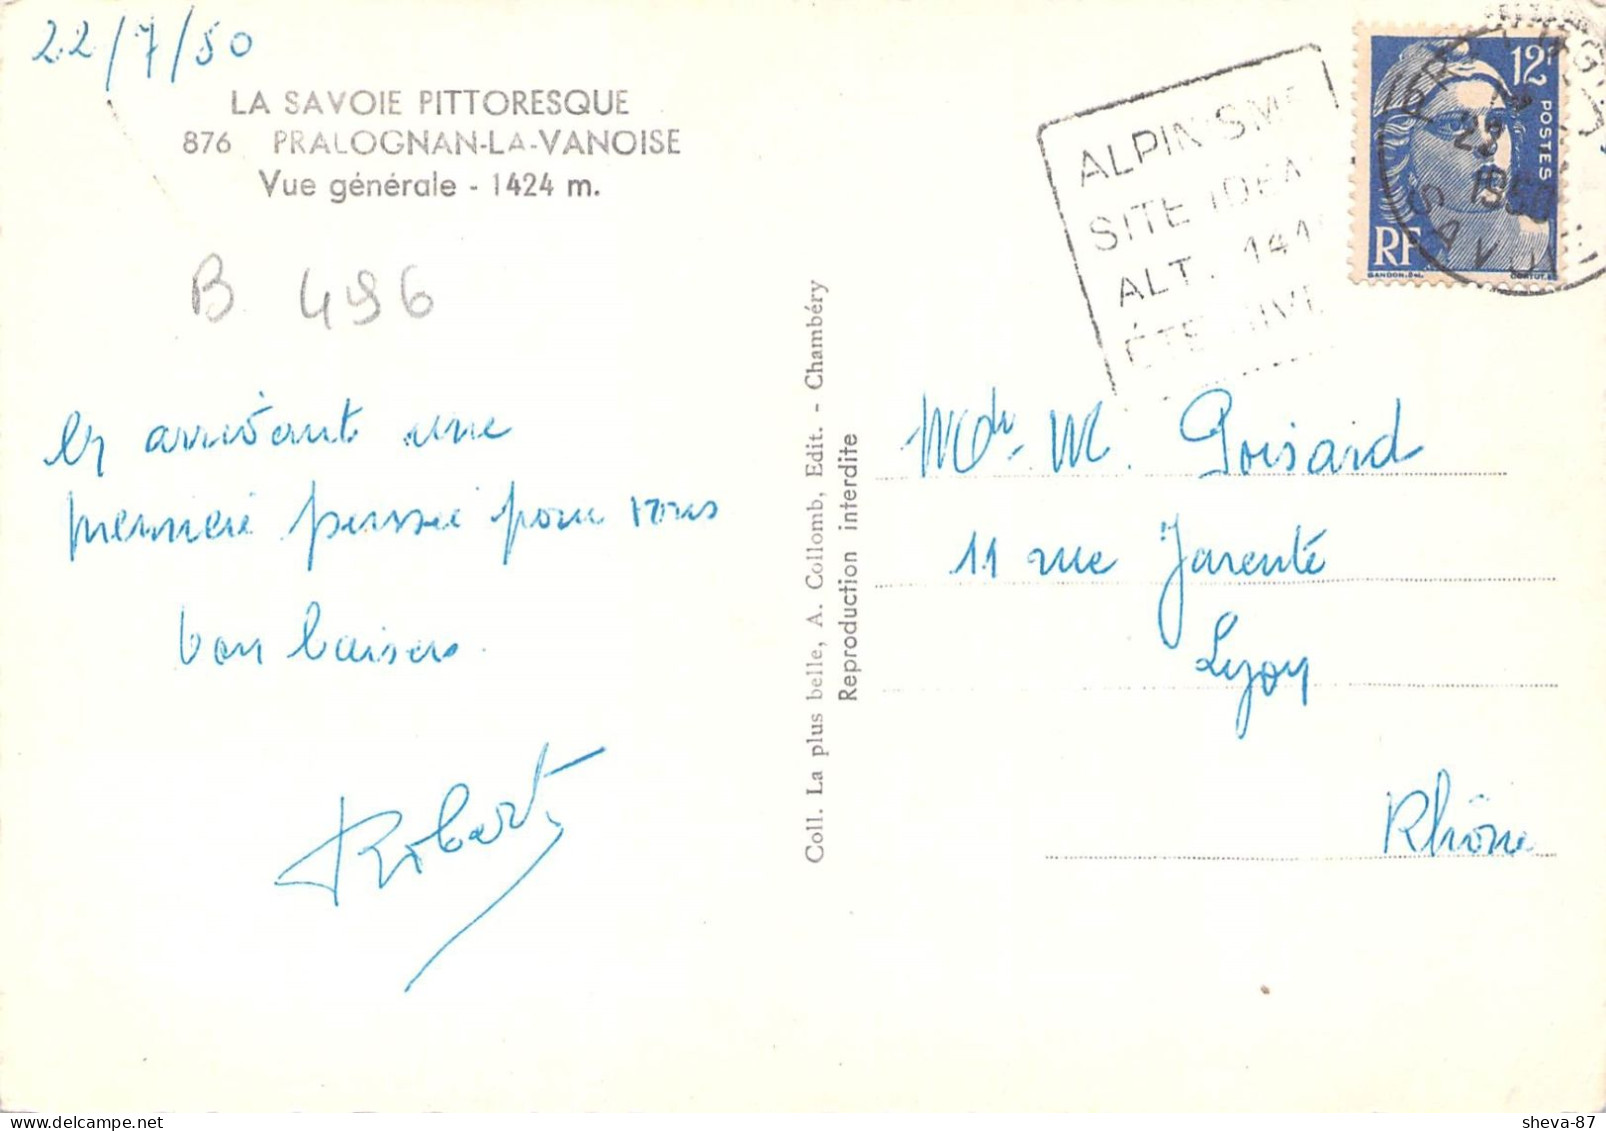 22/7/50
LA SAVOIE PITTORESQUE
876 PRALOGNAN-LA-VANOISE
Vue générale - 1424 m.
B 496
En arrivant une
première pensée pour vous
bon baisers.
Robert
Coll. La plus belle, A. Collomb, Edit. - Chambéry
Reproduction interdite
ALPINISME
SITE IDEA
ALT. 141
ÉTÉ HIVE
12F
POSTES
RF
GANDON.Del.
CORTOT.SC
22
1950
SAVOIE
M. Poisard
11 rue Jarente
Lyon
Rhône
sheva-87